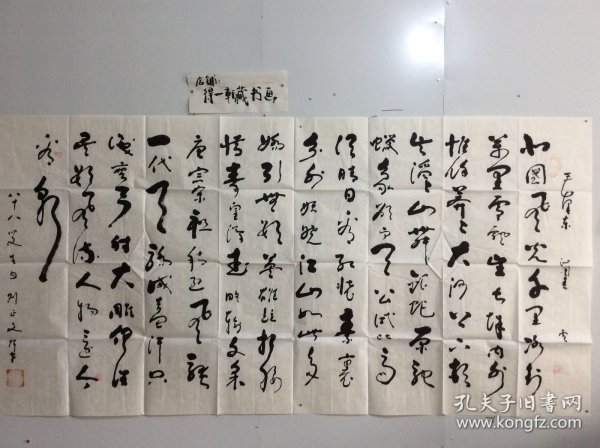 店铺:
得一轩藏书画
毛泽东 沁园春 雪
北國风光千里冰封
万里雪飘望长城内外
惟余莽莽大河上下顿
失滔滔山舞银蛇原驰
蜡象欲与天公试比高
须晴日看红妆素裹
分外妖娆江山如此多
娇引无数英雄竞折腰
惜秦皇汉武略输文采
唐宗宋祖稍逊风骚
一代天骄成吉思汗只
识弯弓射大雕俱往
矣数风流人物还看
今朝
八十八叟
孔夫子旧书网
www.kongfz.com